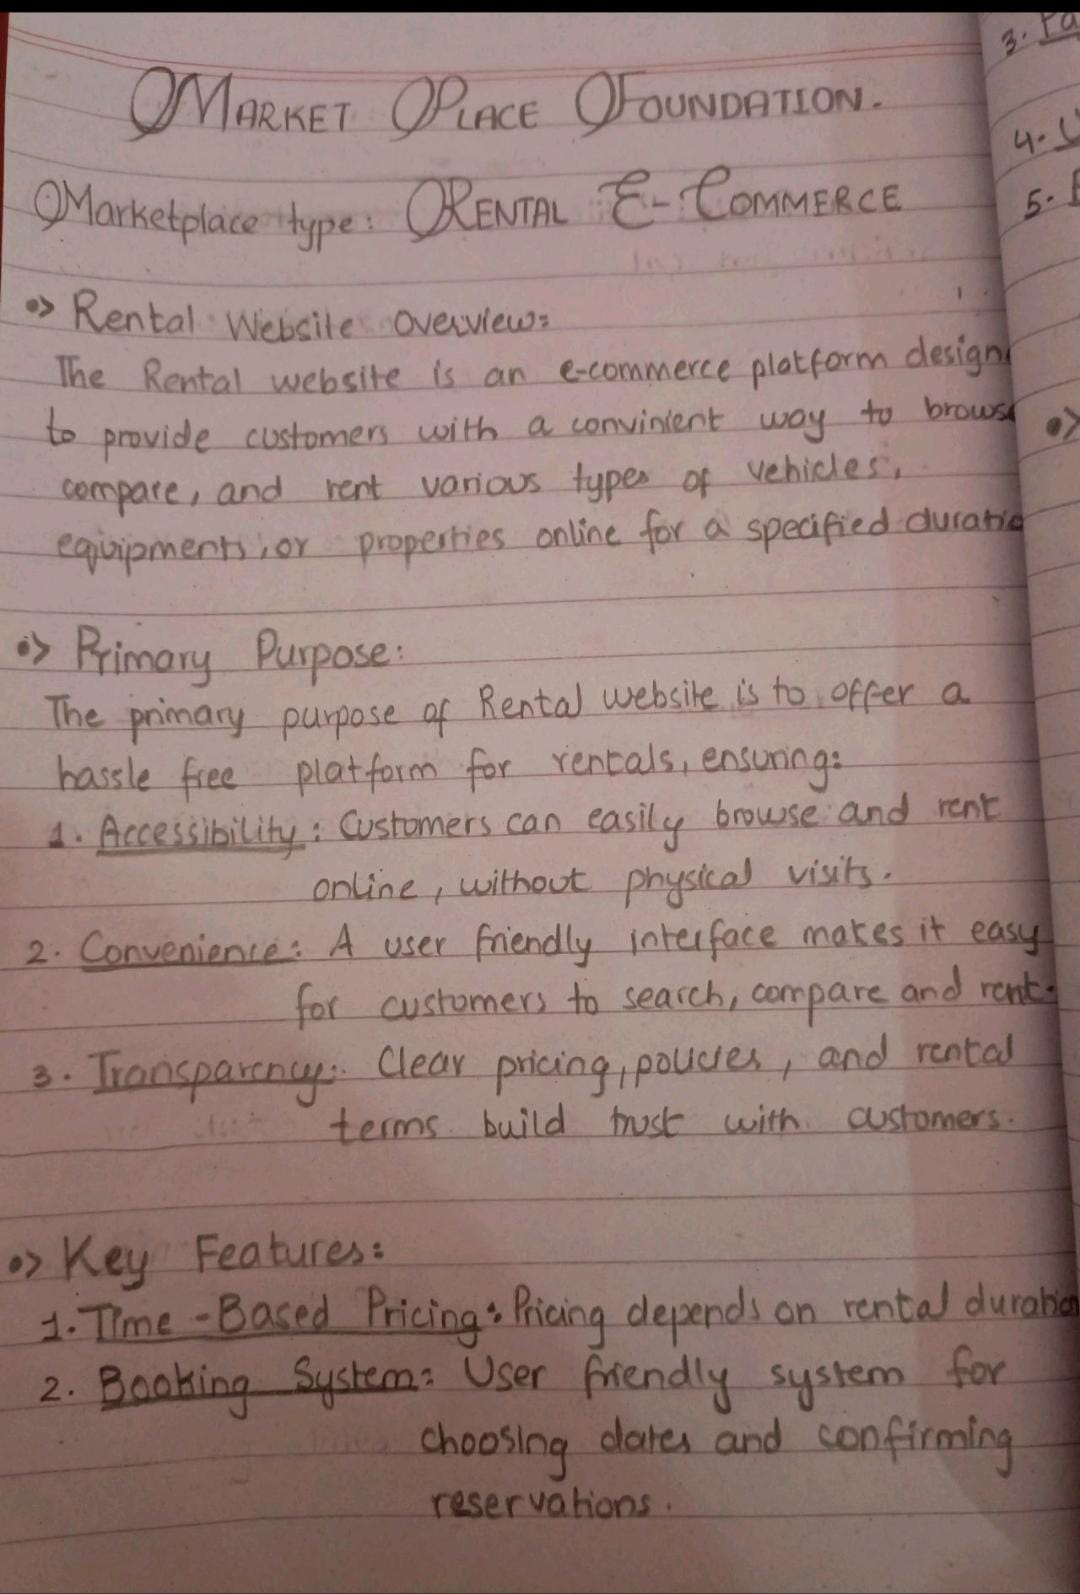 MARKET PLACE FOUNDATION.
Marketplace type: RENTAL E-COMMERCE
Rental Website overview:
The Rental website is an e-commerce platform design
to provide customers with a convinient way to browse
compare, and rent various types of vehicles,
equipments, or properties online for a specified duratio
Primary Purpose:
The primary purpose of Rental website is to offer a
hassle free platform for rentals, ensuring:
1. Accessibility: Customers can easily browse and rent
online, without physical visits.
2. Convenience: A user friendly interface makes it easy
for customers to search, compare and rent.
3. Transparency: Clear pricing, policies, and rental
terms build trust with customers.
Key Features:
1. Time-Based Pricing: Pricing depends on rental duration
2. Booking System: User friendly system for
choosing dates and confirming
reservations.
3.
4.
5.